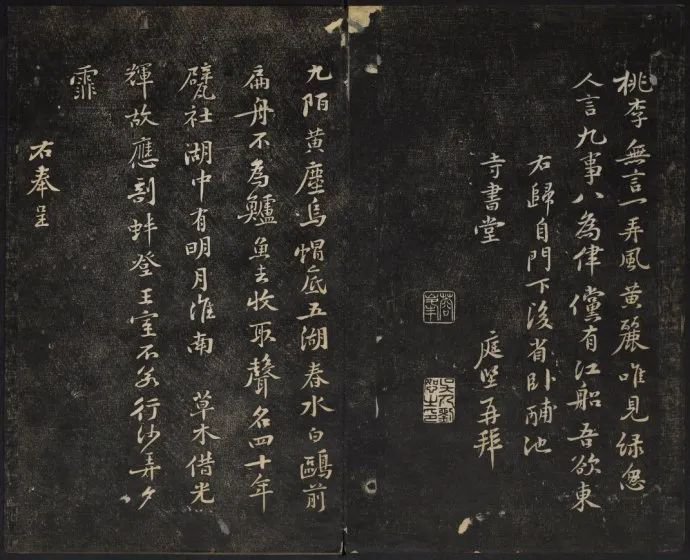 桃李無言一弄風黃麗唯見綠怱
人言九事八為律儻有江船吾欲東
右歸自門下後省卧酺池
寺書堂
庭堅再拜
九陌黃塵烏帽底五湖春水白鷗前
扁舟不為鱸魚去收取聲名四十年
甓社湖中有明月淮南草木借光
輝故應剖蚌登王室不若行沙弄夕
霏
右奉呈